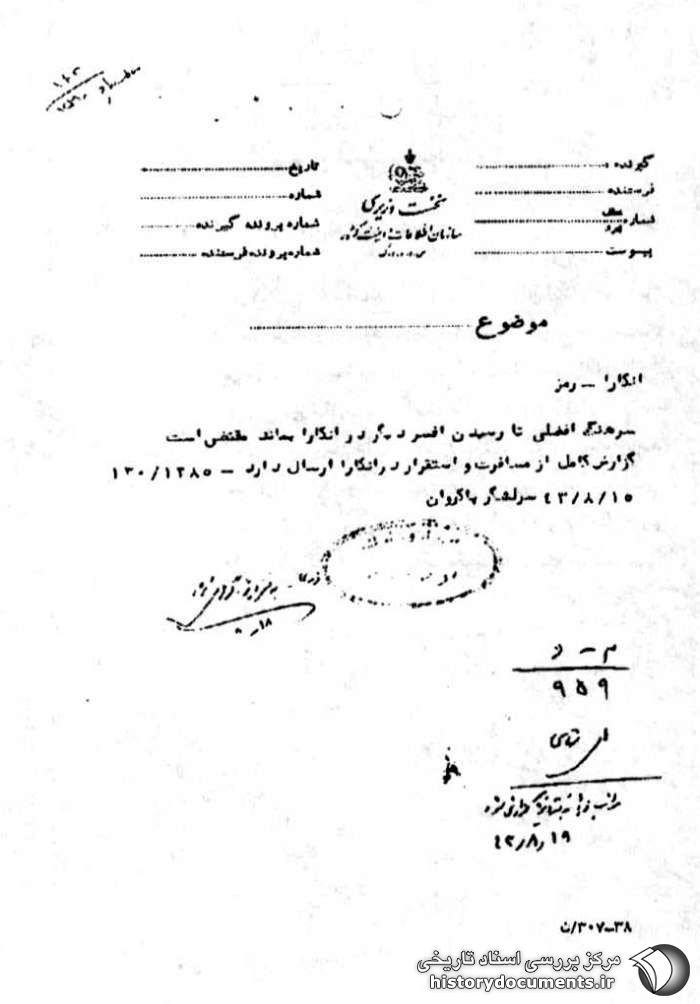 گیرنده
فرستنده
شماره
پیوست
نخست وزیری
سازمان اطلاعات و امنیت کشور
س. ا. و. ا. ک
تاریخ
شماره
شماره پرونده گیرنده
شماره پرونده فرستنده
موضوع
انکارا ــ رمز
سرهنگ افضلی تا رسیدن افسر دیگر در انکارا بماند مقتضی است
گزارش کامل از مسافرت و استقرار در انکارا ارسال دارد ــ ۱۳۰/۱۲۸۵
۴۳/۸/۱۵ سرلشگر پاکروان
۸ــ۱۸
م - د
۹۵۹
۴۳٫۸٫۱۹
۳۸ــ۳۰۷/ت
مرکز بررسی اسناد تاریخی
historydocuments.ir